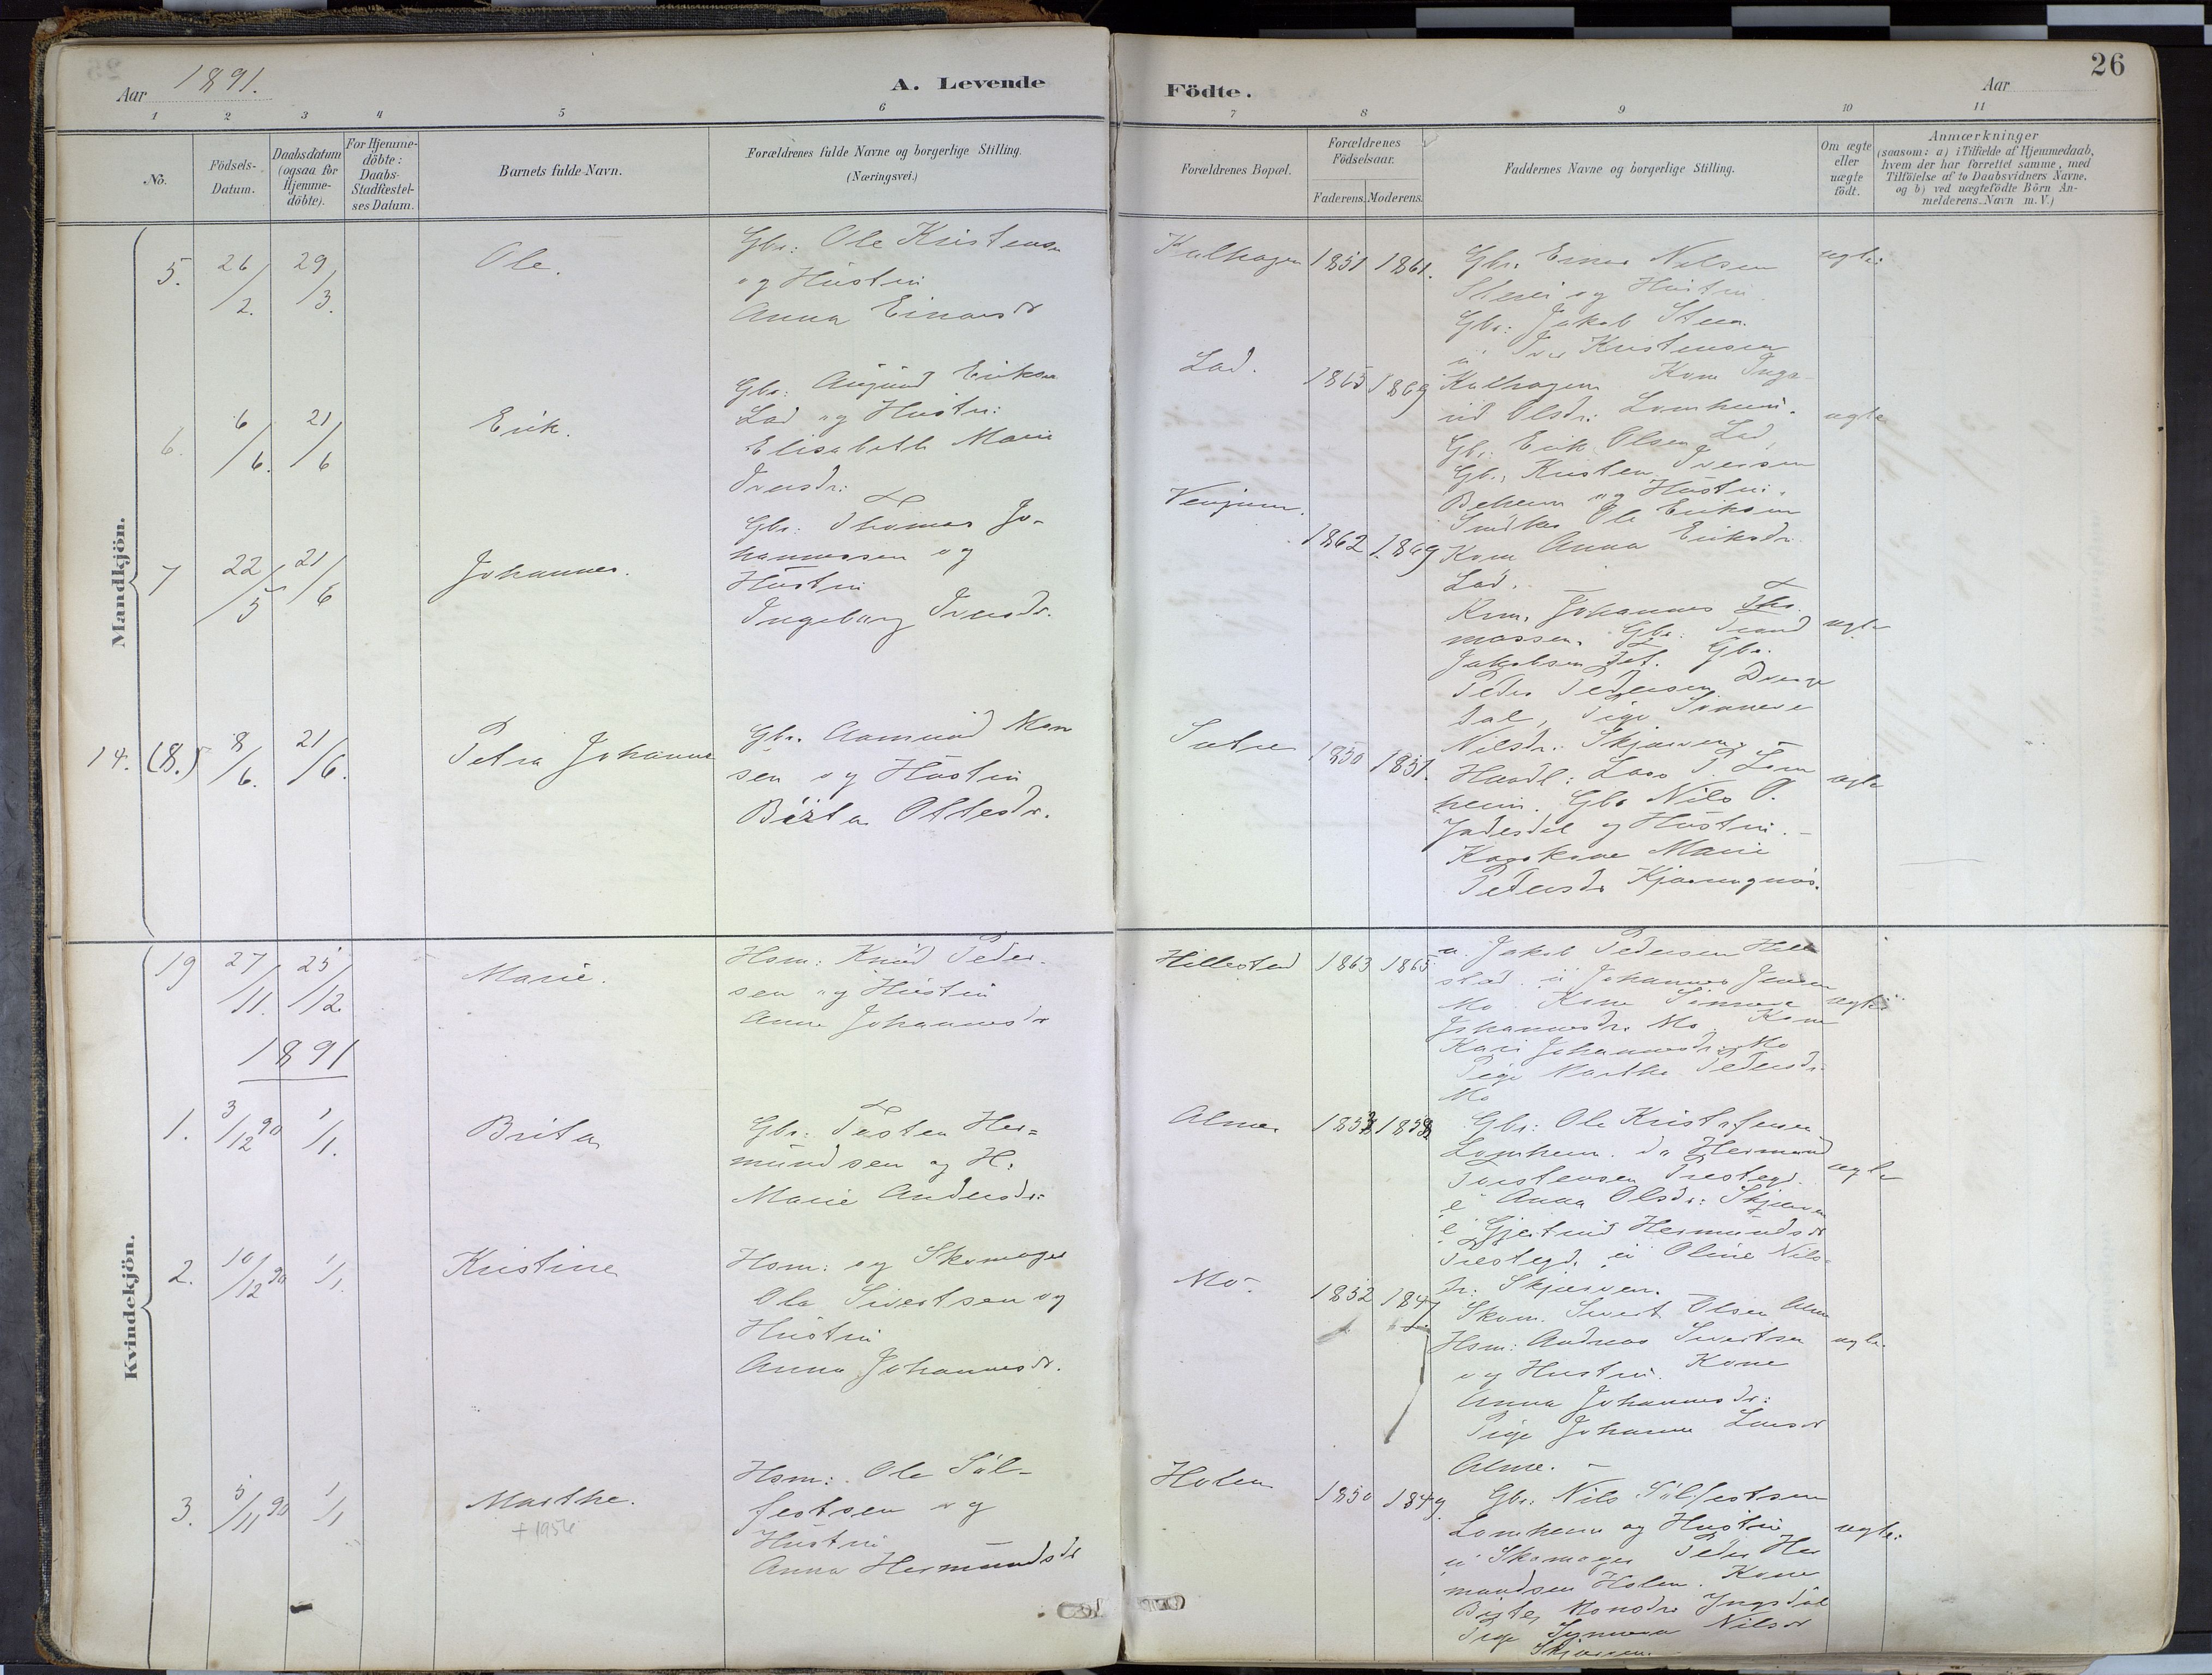 Aar 1891.
A. Levende
Födte.
Aar
26
1 2 3 4 5 6 7 8 9 10 11
No.
Födsels-Datum.
Daabsdatum (ogsaa for Hjemme-döbte).
For Hjemme-döbte: Daabs-Stadfæstel-ses Datum.
Barnets fulde Navn.
Forældrenes fulde Navne og borgerlige Stilling.
(Næringsvei.)
Forældrenes Bopæl.
Forældrenes Födselsaar.
Faderens. Moderens.
Faddernes Navne og borgerlige Stilling.
Om ægte eller uægte födt.
Anmærkninger
(saasom: a) i Tilfælde af Hjemmedaab,
hvem der har forrettet samme, med
Tilföielse af to Daabsvidners Navne.
og b) ved uægtefödte Börn An-
melderens Navn m. V.)
Mandkjön.
5. 26/2. 29/3. Ole.
Gbr: Ole Kristensen
og Hustru
Anna Einarsdr
Kalhagen 1851 1861.
Gbr. Einar Nilsen
og Hustru.
Gbr: Jakob
Iver Kristensen
Kalhagen Kone Inga-
rid Olsdr: Lomheim.
ægte:
6. 6/6. 21/6 Erik.
Gbr: Augund Eriksen
Lad og Hustru:
Elisabeth Marie
Iversdr:
Lad. 1865 1869
Gbr: Erik Olsen Lad,
Gbr: Kristen Iversen
og Hustru.
Ole Eriksen
Kone Anna Eriksdr.
Lad.
ægte
7 22/5 21/6 Johannes.
Gbr. Thomas Jo-
hannessen og
Hustru
Ingeborg Iversdr.
Venjum. 1862 1869
Johannes Tho-
massen. Gbr:
Jakobsen Gbr.
Peder Pedersen
dal, Pige Synneve
Nilsdr: Skjerven.
ægte
14. (8.) 8/6. 21/6. Petra Johanne
Gbr. Aamund Mon
sen og Hustru
Brita Ottesdr.
1850 1851.
Handl: Lars P. Lom
heim. Gbr Nils O.
og Hustru. -
Marie
Pedersdr
ægte
Kvindekjön.
19 27/11. 25/12. Marie.
Hsm: Knud Peder-
sen og Hustru
Anna Johannesdr
Hillestad 1863 1865
u. Jakob Pedersen Hille
stad. u Johannes Jensen
Mo Kone Synneve
Johannesdr. Mo. Kone
Kari Johannesdr: Mo
Pige Marthe Pedersdr.
Mo
ægte
1891
1. 3/12 90 1/1. Brita
Gbr: Tosten Her=
mundsen og H:
Marie Andersdr:
Alme
Gbr: Ole Kristofersen
Lomheim. do Hermund
Torstensen Prestegd.
e Anna Olsdr: Skjerven
e Gjertrud Hermundsdr
Prestegd. u Oline Nils-
dr: Skjerven.
ægte
2. 10/12 90 1/1. Kristine
Hsm: og Skomager
Ole Sivertsen og
Hustru
Anna Johannesdr.
Mo. 1852 1847
Skom. Sivert Olsen Alme
Hsm: Andreas Sivertsen
og Hustru. Kone
Anna Johannesdr:
Pige Johanne Larsdr
Alme. -
ægte.
3. 5/11 90 1/1 Marthe.
+ 1956
Hsm: Ole Söl-
festsen og
Hustru
Anna Hermundsdr
Holen 1850 1849.
Gbr: Nils Sölfestsen
Lomheim og Hustru
u Skomager Peder Her
mundsen Holen. Kone
Brita Monsdr
Pige Synneva Nilsdr
Skjerven.
ægte: